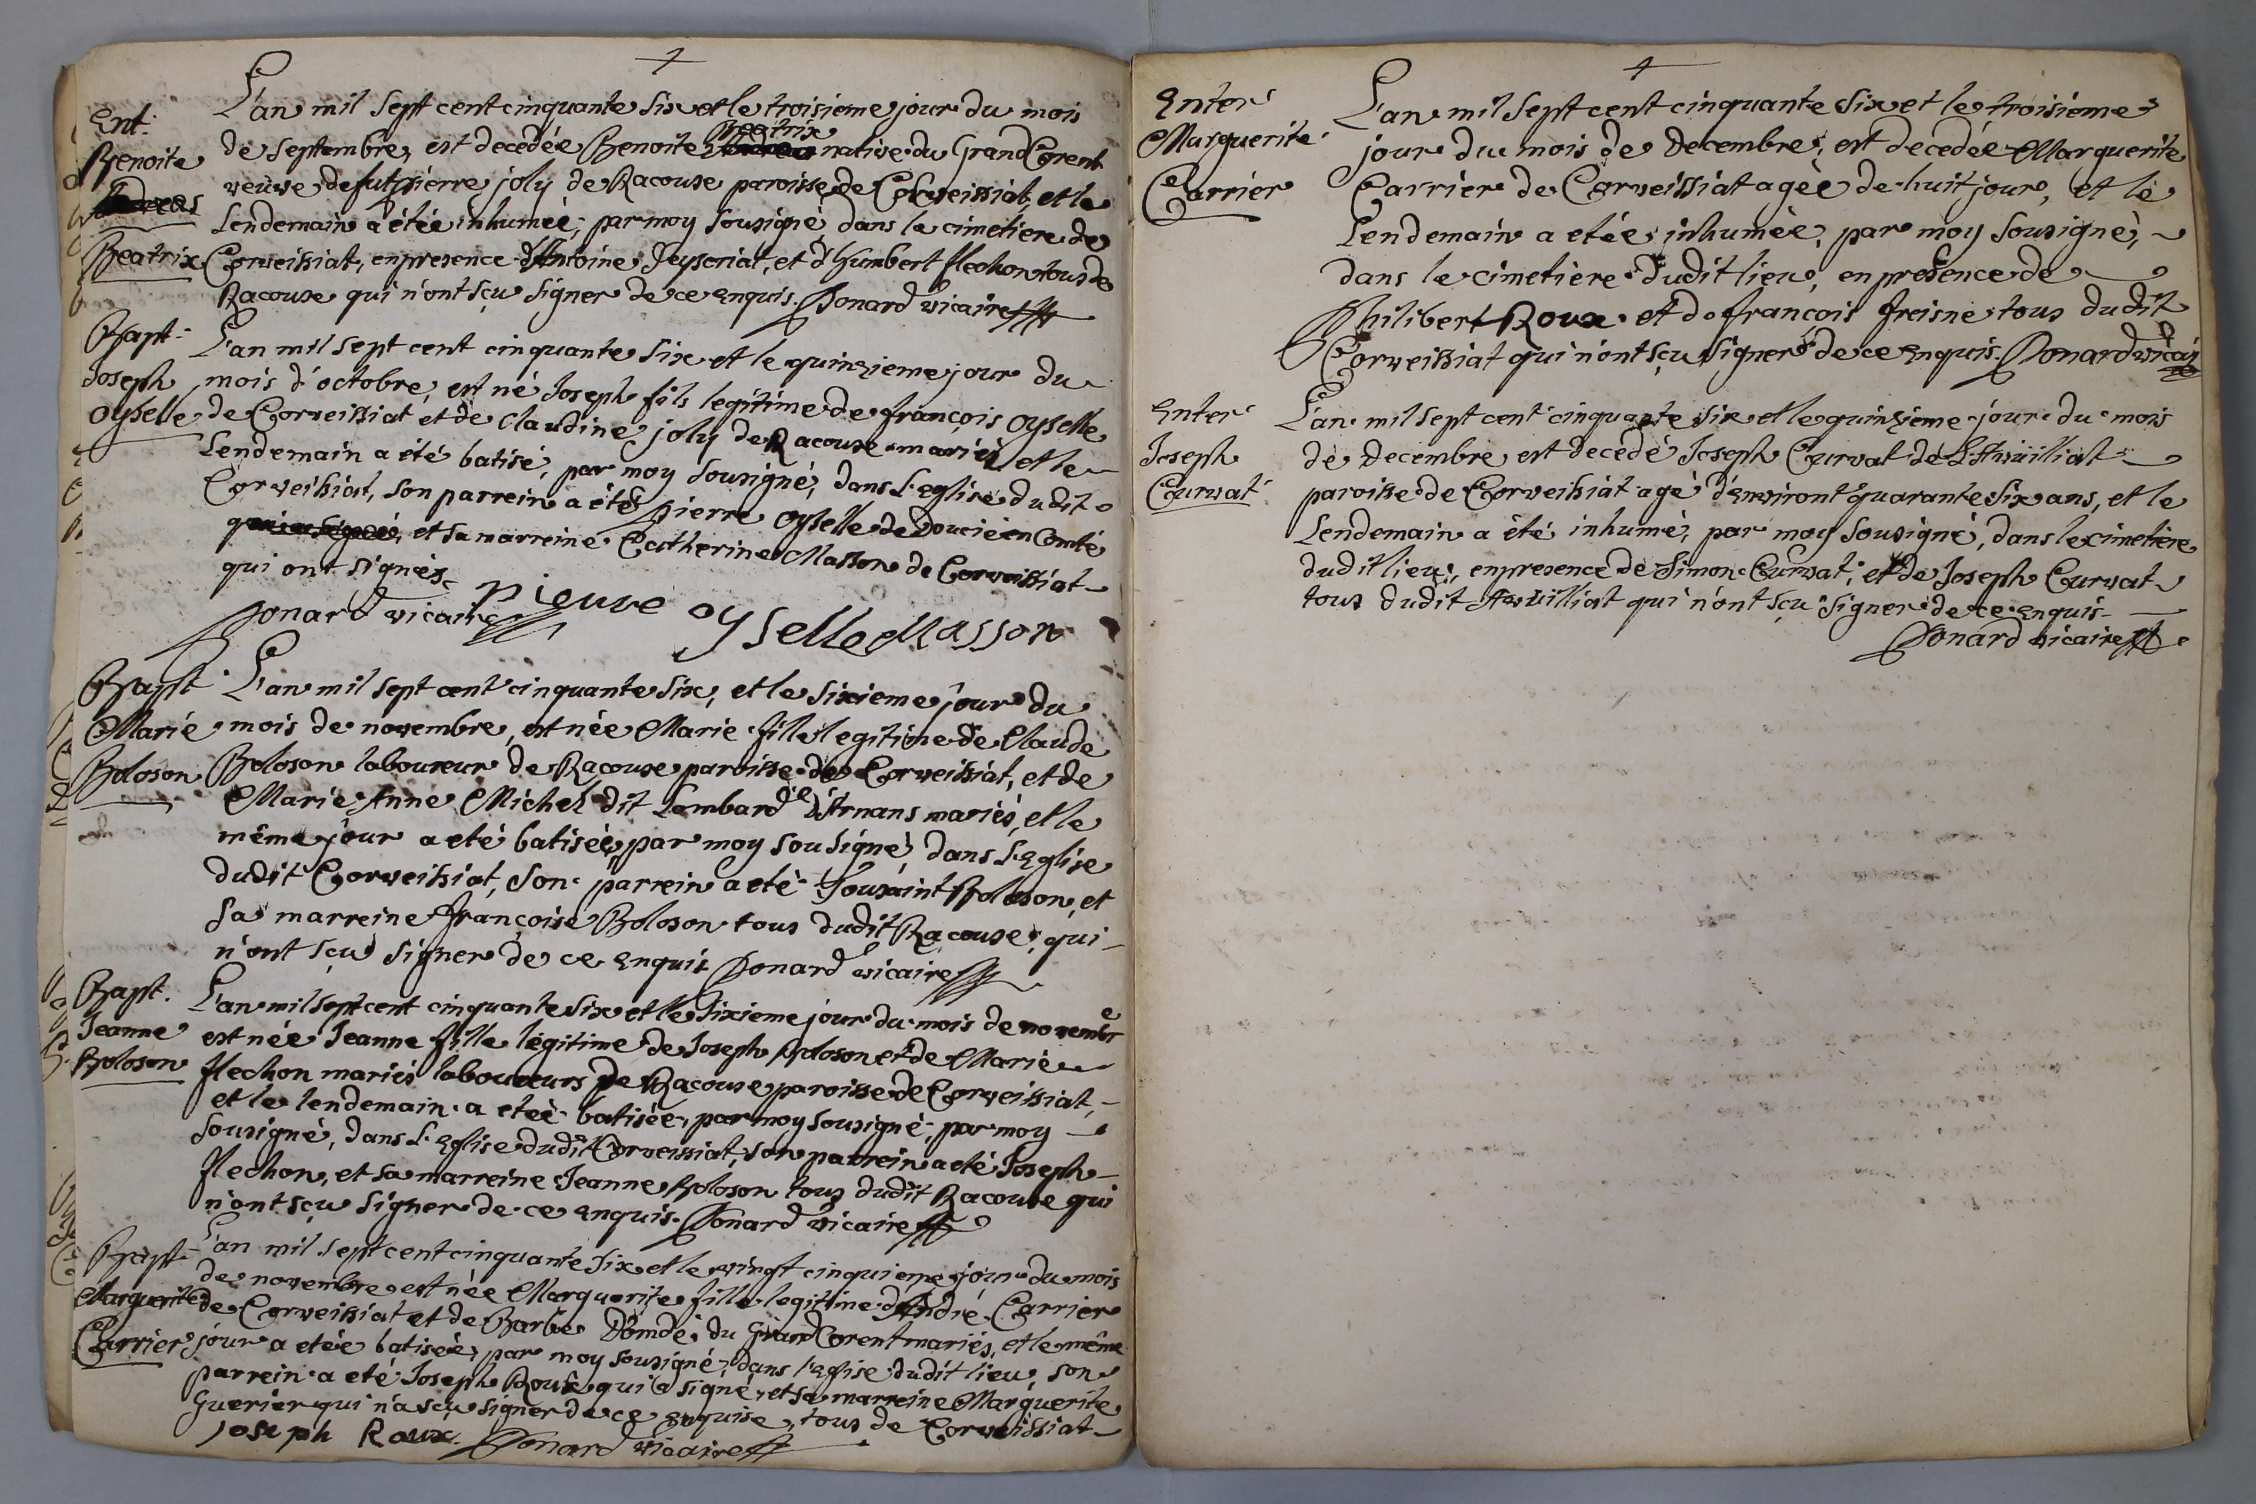 Ent:
Benoite
Beatrix
L'an mil sept cent cinquante six et le troisieme jour du mois
de septembre, est decedée Benoite Beatrix native du Grand Corent
veuve de fut pierre joly de Racouse paroisse de Corveissiat, et le
Lendemain a étée inhumée, par moy sousigné dans le cimetiere de
Corveissiat, en presence d'Antoine Teyscriat, et d'humbert flechon tous de
Racouse qui n'ont sçu signer de ce enquis. Donard vicaire
Bapt:
Joseph
oyselle
L'an mil sept cent cinquante six et le quinzieme jour du
mois d'octobre, est né Joseph fils legitime de francois oyselle
de Corveissiat et de Claudine joly de Racouse mariés et le
Lendemain a été batisé, par moy sousigné, dans L'Eglise dudit
Corveissiat, son parrein a été pierre oyselle de Doucié en Comté
qui a signé, et sa marreine Catherine Masson de Corveissiat
qui ont signés
Donard vicaire pierre oyselle Masson
Bapt
Marie
Boloson
L'an mil sept cent cinquante six, et le sixieme jour du
mois de novembre, est née Marie fille legitime de Claude
Boloson laboureur de Racouse paroisse de Corveissiat, et de
Marie Anne Michel dit Lombard d'Arnans mariés, et le
même jour a eté batisée, par moy sousigné, dans L'Eglise
dudit Corveissiat, son parrein a eté Tousaint Boloson, et
sa marreine françoise Boloson tous dudit Racouse, qui
n'ont sçu signer de ce enquis Donard vicaire
Bapt.
Jeanne
Boloson
L'an mil sept cent cinquante six et le sixieme jour du mois de novembre
est née Jeanne fille légitime de Joseph Boloson et de Marie
flechon mariés laboureurs de Racouse paroisse de Corveissiat,
et le lendemain a eteé batisée, par moy sousigné, par moy
sousigné, dans L'Eglise dudit Corveissiat, son parrein a eté Joseph
flechon, et sa marreine Jeanne Boloson tous dudit Racouse qui
n'ont sçu signer de ce enquis. Donard vicaire
Bapt
Marguerite
Carrier
L'an mil sept cent cinquante six et le vingt cinquieme jour du mois
de novembre est née Marguerite fille legitime d'André Carrier
de Corveissiat et de Barbe Domde du Grand Corent mariés, et le même
jour a etée batiseé, par moy sousigné, dans l'Eglise dudit lieu, son
parrein a eté Joseph Roux qui a signé, et sa marreine Marguerite
Guerier qui n'a sçu signer de ce enquise, tous de Corveissiat
Joseph Roux. Donard vicaire
Enter
Marguerite
Carrier
L'an mil sept cent cinquante six et le troisieme
jour du mois de Decembre, est decedée Marguerite
Carrier de Corveissiat agée de huit jour, et le
Lendemain a etée inhumée, par moy sousigné,
dans le cimetière dudit lieu, en presence de
Philibert Roux et de françois freisne tous dudit
Corveissiat qui n'ont sçu signer de ce enquis. Donard vicaire
Enter
Joseph
Curvat
L'an mil sept cent cinquante six et le quinzieme jour du mois
de decembre est decedé Joseph Curvat de L'Avuilliat
paroisse de Corveissiat agé d'environt quarante six ans, et le
Lendemain a été inhumé, par moy sousigné, dans le cimetiere
dudit lieu, en presence de Simon Curvat, et de Joseph Curvat
tous dudit Avuilliat qui n'ont sçu signer de ce enquis
Donard vicaire